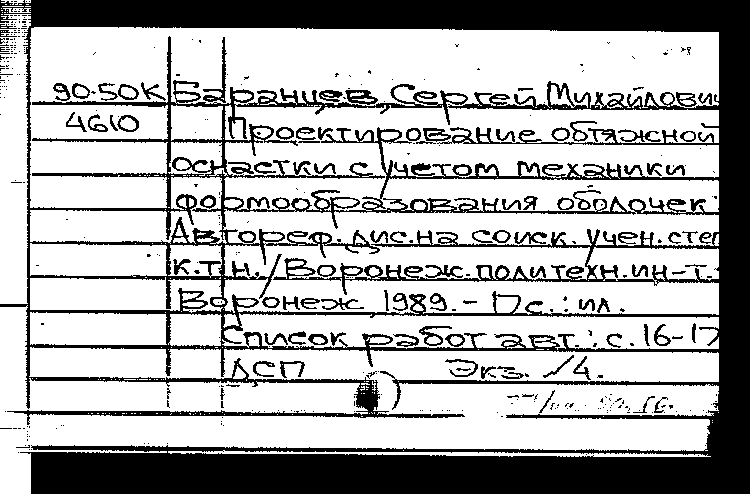 90-50К Баранцев, Сергей Михайлович
4610 Проектирование обтяжной
оснастки с учетом механики
формообразования оболочек:
Автореф. дис. на соиск. учен. степ
к.т.н. / Воронеж. политехн. ин-т. -
Воронеж, 1989. - 17с. : ил.
Список работ авт.: с. 16-17
ДСП Экз. №4.